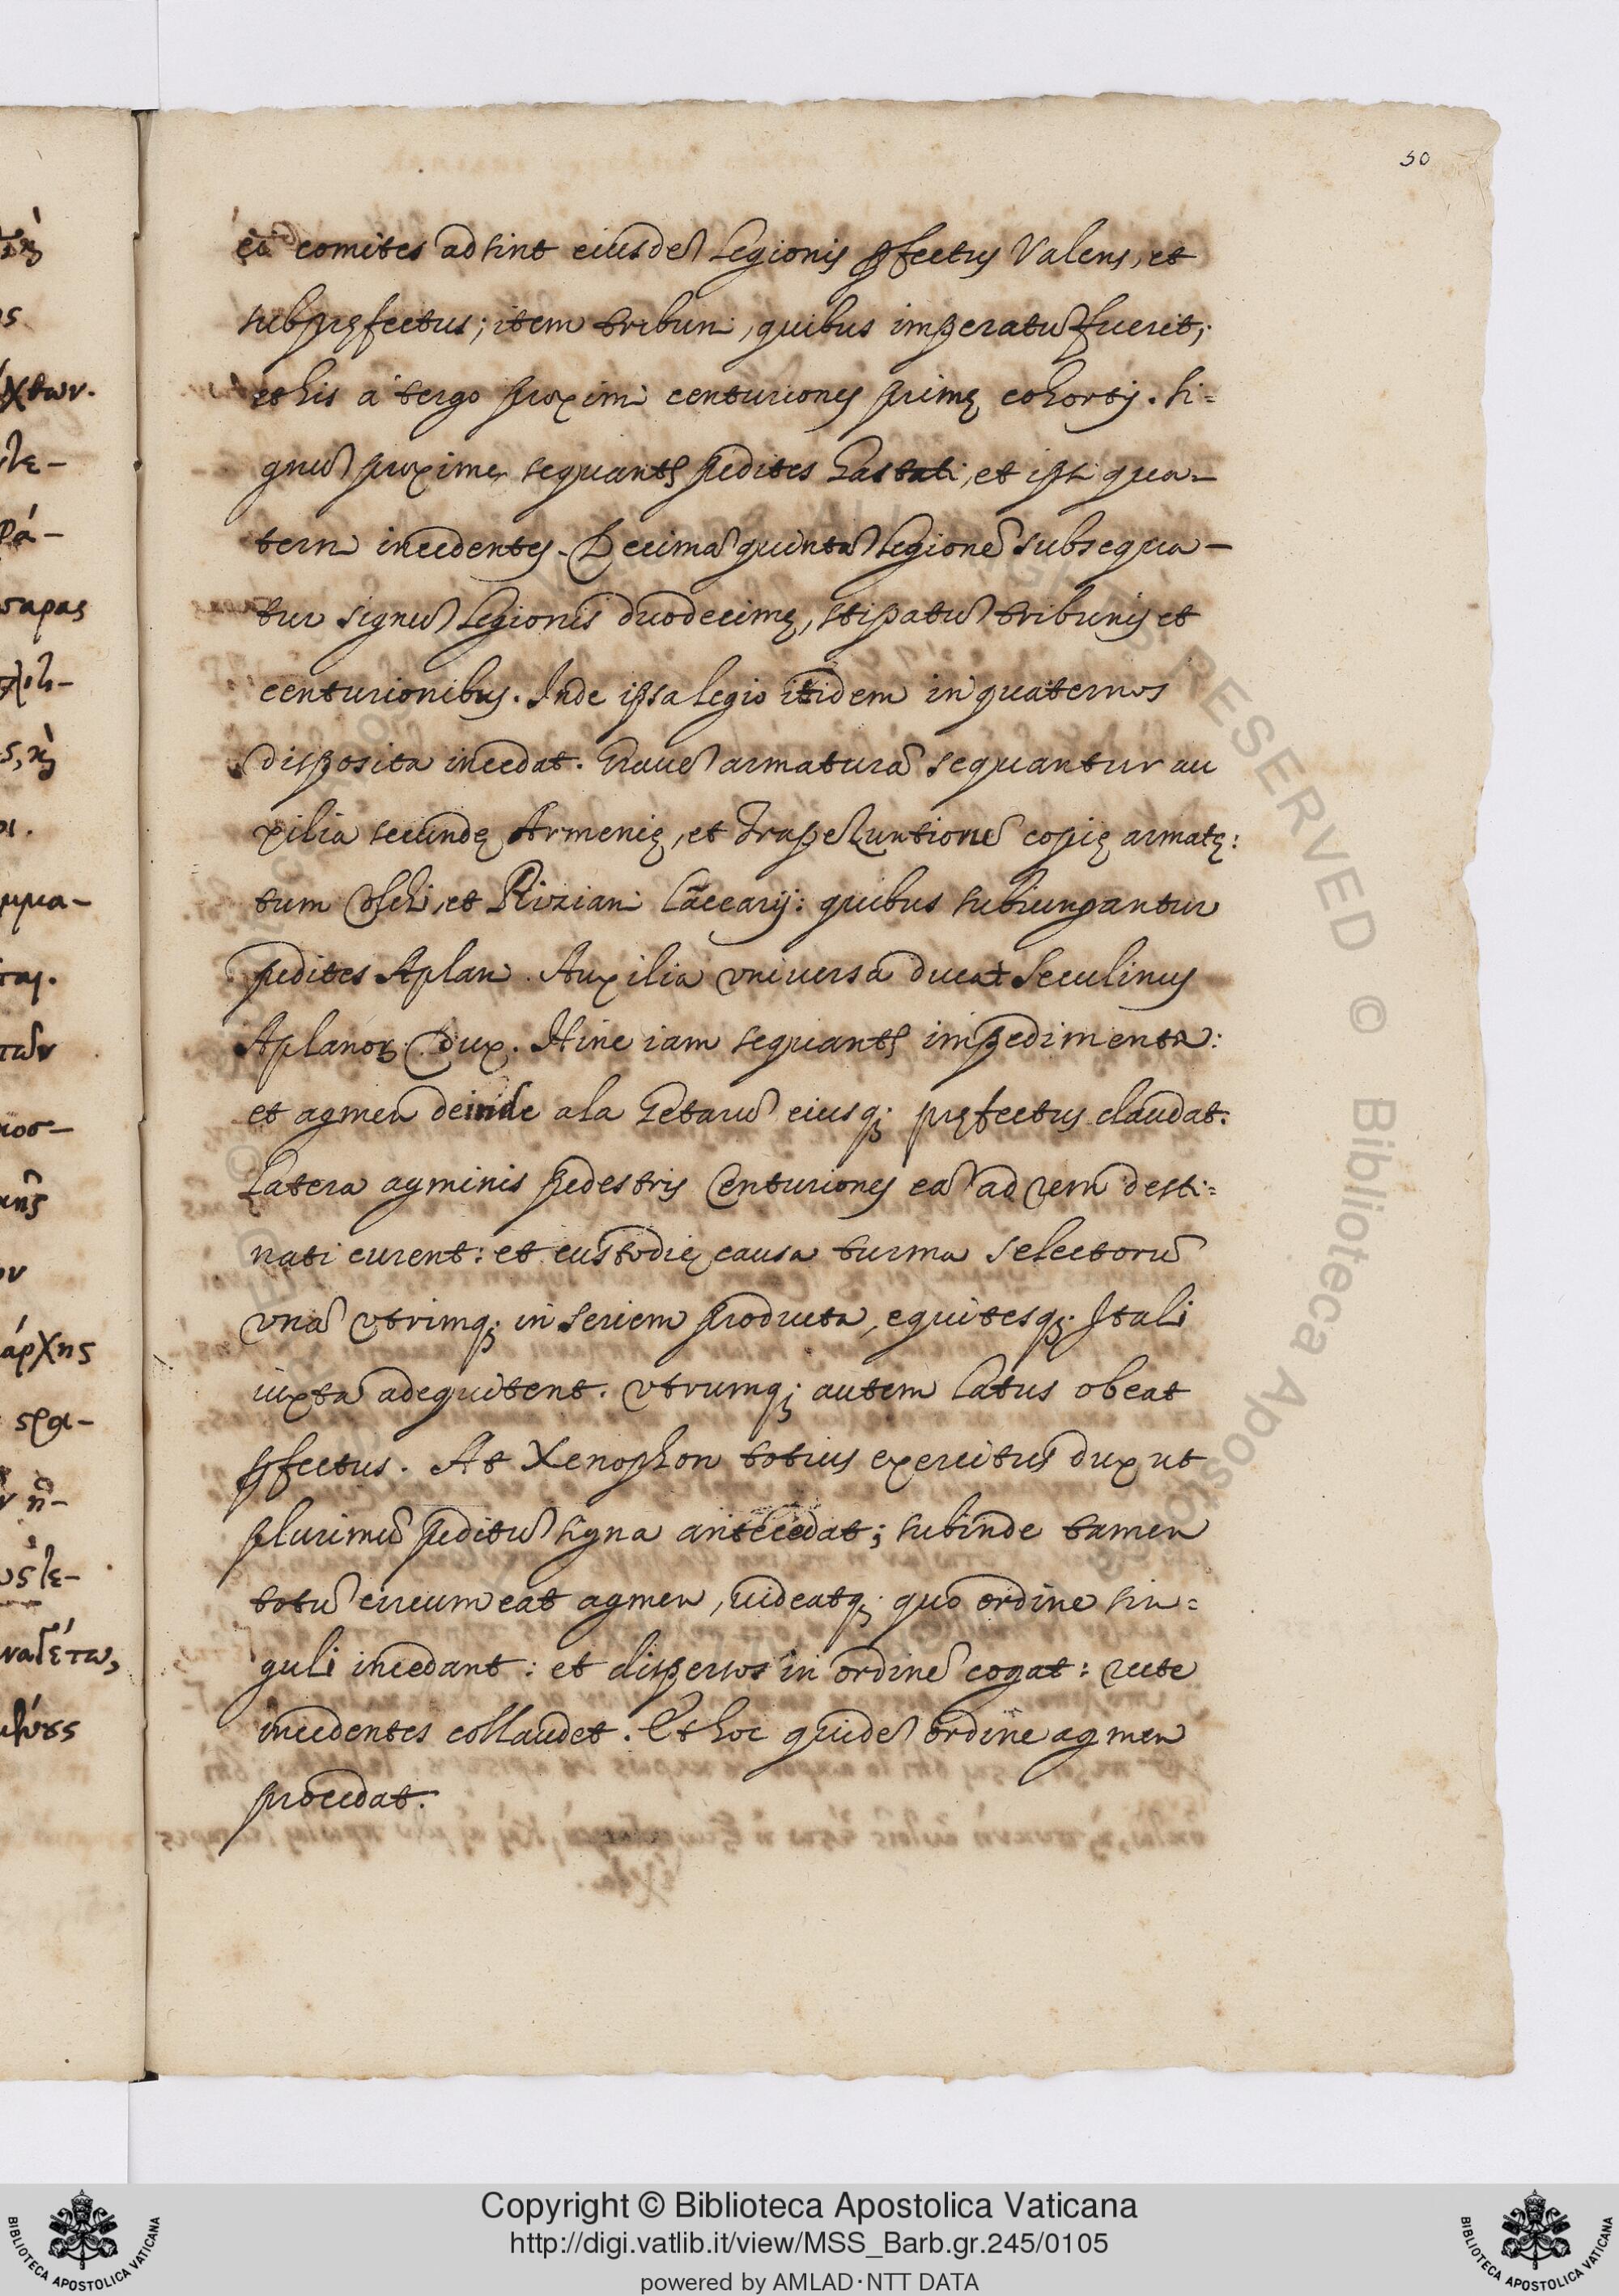 50
ei comites adsint eiusdẽ legionis p̃fectus Valens, et
subpręfectus; item tribuni, quibus imperatũ fuerit;
et his à tergo proximi centuriones primę cohortis. Si=
gnũ proxime sequantꝰ pedites hastati, et ipsi qua-
terni incedentes. Decimã quintã legionẽ subsequa-
tur signũ legionis duodecimę, stipatũ tribunis et
centurionibus. Inde ipsa legio itidem in quaternos
disposita incedat. Grauẽ armaturã sequantur au
xilia secundę Armenię, et Trapezuntionẽ copię armatę:
tum et Riziani lãcearij: quibus subiungantur
pedites Aplani. Auxilia vniuersa ducat Seculinus
Aplanoꝝ dux. Hinc iam sequantꝰ impedimenta:
et agmen deinde ala Getarũ eiusq; pręfectus claudat.
Latera agminis pedestris Centuriones eã ad rem desti=
nati curent: et custodię causa turma selectorũ
vnã vtrimq; in seriem producta, equitesq; Itali
iuxtã adequitent. vtrumq; autem latus obeat
p̃fectus. At Xenophon totius exercitus dux ut
plurimũ peditũ signa antecedat; subinde tamen
totũ circumeat agmen, uideatq; quo ordine sin=
guli incedant: et dispersos in ordinẽ cogat: recte
incedentes collaudet. Et hoc quidẽ ordine agmen
procedat.
ἄρχης
Copyright © Biblioteca Apostolica Vaticana
http://digi.vatlib.it/view/MSS_Barb.gr.245/0105
powered by AMLAD·NTT DATA
BIBLIOTECA APOSTOLICA VATICANA
BIBLIOTECA APOSTOLICA VATICANA